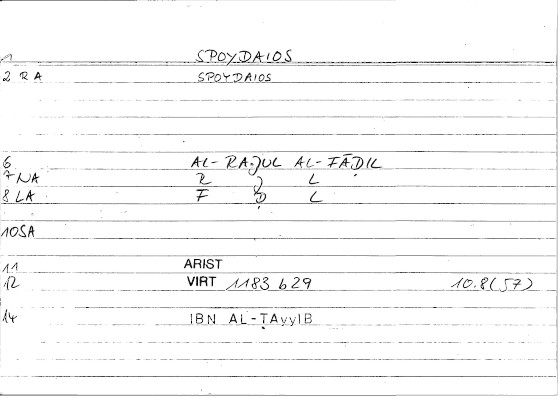 1 SPOYDAIOS
2 RA SPOYDAIOS
6 AL-RAJUL AL-FĀḌIL
7 NA R J L
8 LA F Ḍ L
10 SA
11 ARIST
12 VIRT 1183 b29 10.8(57)
14 IBN AL-ṬAyyIB